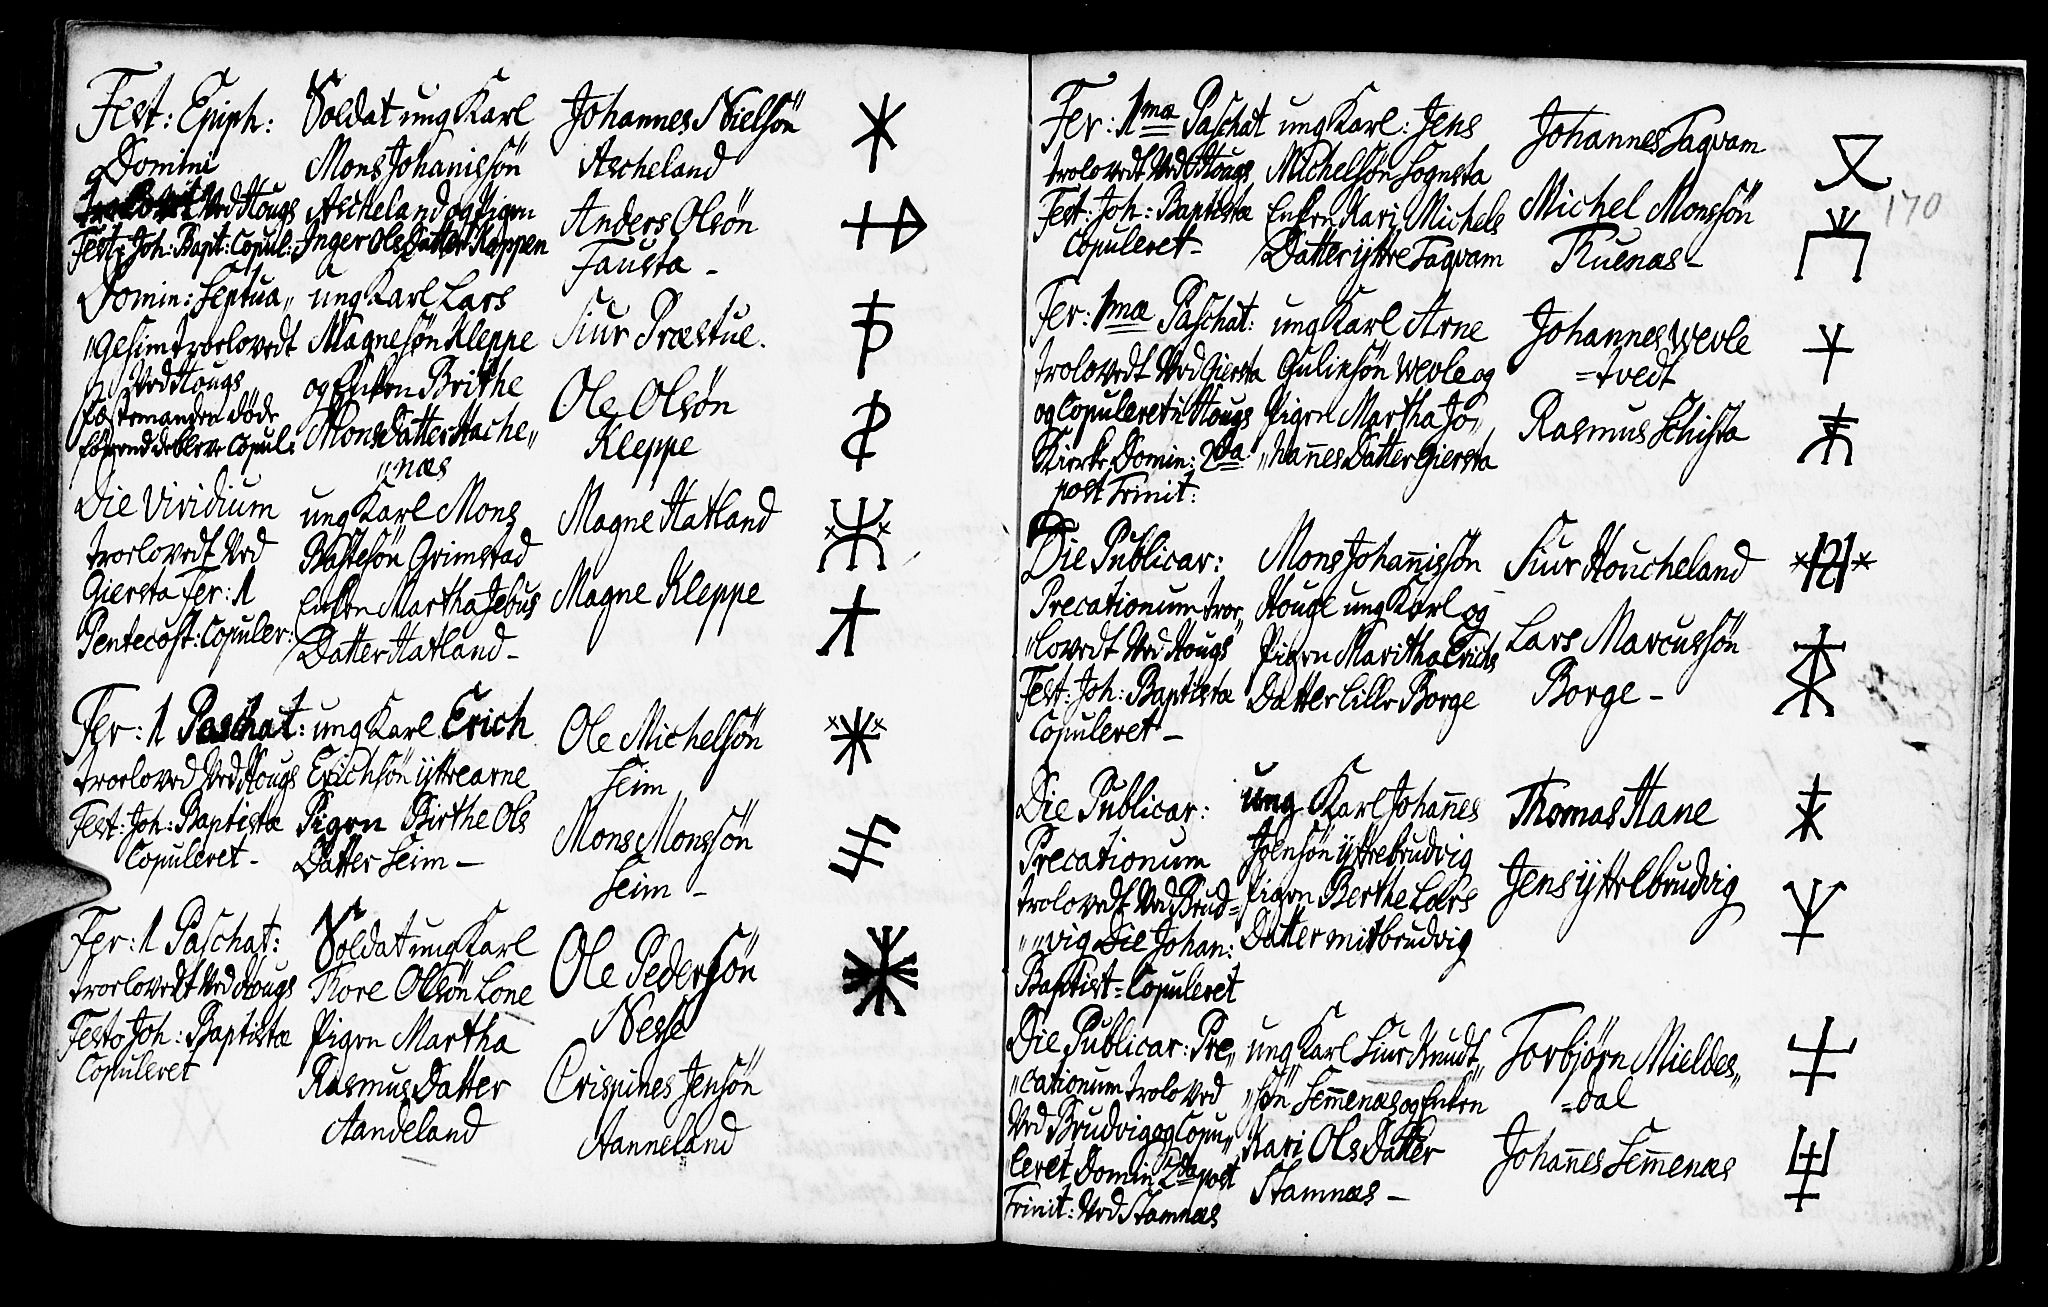 Fest: Epiph:
Domini
Ved Hougs
Fest: Joh: Bapt: Copul:
Soldat ung Karl
Mons Johanissön
Ascheland og Pigen
Inger Ols Datter Kleppen
Johannes Nielsön
Ascheland
Anders Olsön
Fausta -
Domin: Septua„
„gesim troelovedt
Ved Hougs
Festemanden döde
förend de bleve Copul:
ung Karl Lars
Magnesön Kleppe
og Enken Brithe
Monsdatter Hache„
„næs
Siur Præstue.
Ole Olsön
Kleppe
Die Viridium
troelovedt Ved
Giersta Fer: 1
Pentecost: Copuler:
ung Karl Mons
Bastesön Grimstad
Enken Martha Jebus
Datter Hatland -
Magne Hatland
Magne Kleppe
Fer: 1 Paschat:
troeloved Ved Hougs
Fest: Joh: Baptistæ
Copuleret -
ung Karl Erich
Erichsön ÿttre arne
Pigen Birthe Ols
Datter Seim -
Ole Michelsön
Seim
Mons Monssön
Seim -
Fer: 1 Paschat:
troelovedt Ved Hougs
Festo Joh: Baptistæ
Copuleret
Soldat ung Karl
Thore Olssön Lone
Pigen Martha
Rasmus Datter
Aandeland
Ole Pedersön
Nesse
Crispines Jensön
Aanneland
170
Fer: 1mæ Paschat
trolovedt Ved Hougs
Fest: Joh: Baptistæ
Copuleret -
ung Karl: Jens
Michelsön Songsta
Enken Kari Michels
Datter ÿttre Tagvam
Johannes Tagvam
Michel Monssön
Thuenæs -
Fer: 1mæ Paschat:
trolovedt Ved Giersta
og Copuleret i Hougs
Kierke Domin: 2da
post Trinit:
ung Karl Arne
Guliksön Wevle og
Pigen Martha Jo„
„hannes Datter Giersta
Johannes Wevle
=tvedt
Rasmus Schista
Die Publicar:
Precationum troe„
„lovedt Ved Hougs
Fest: Joh: Baptistæ
Copuleret -
Mons Johanissön
Houge ung Karl og
Pigen Maritha Erichs
Datter Lille Borge
Siur Houcheland
Lars Marcussön
Borge -
Die Publicar:
Precationum
trolovedt Ved Brud=
„vig Die Johan:
Baptist= Copuleret
ung Karl Johannes
Jensön ÿttrebrudvig
Pigen Berthe Lars
Datter mitbrudvig
Thomas Hane
Jens ÿttrebrudvig
Die Publicar: Pre„
„cationum troloved
Ved Brudvig og Copu„
„leret Domin 2da post
Trinit: Ved Stamnæs
ung Karl Siur Knudt„
„sön Semmenæs og Enken
Kari Ols Datter
Stamnæs -
Torbjørn Mieldes„
=dal
Johannes Semmenæs